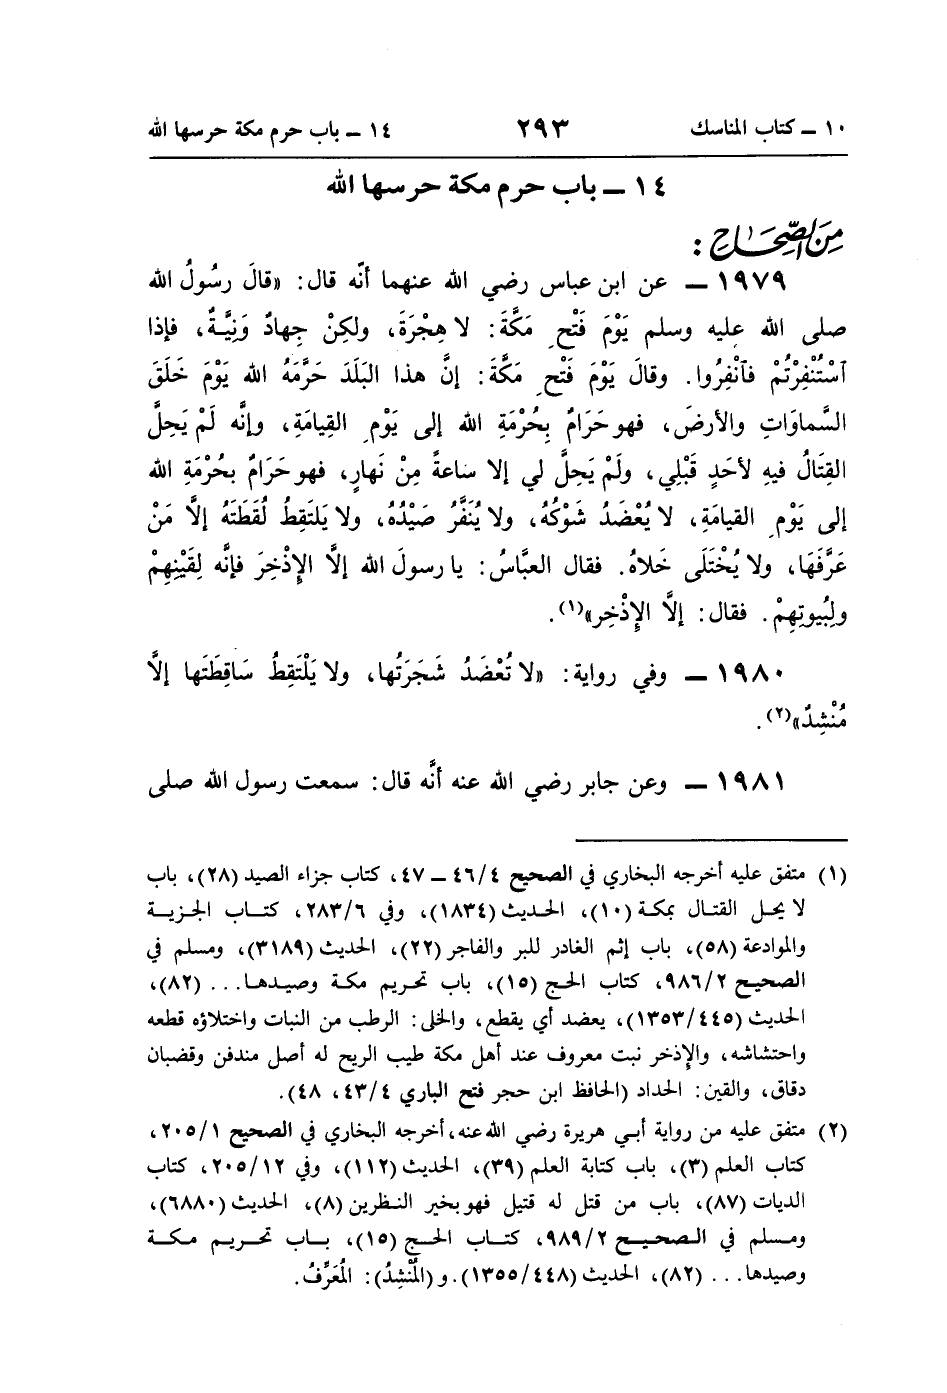 ١٠ ــ كتاب المناسك ٢٩٣ ١٤ ــ باب حرم مكة حرسها الله
١٤ ــ باب حرم مكة حرسها الله
مِنَ الصِّحَاحِ :
١٩٧٩ ــ عن ابن عباس رضي الله عنهما أنّه قال: «قالَ رسُولُ الله
صلى الله عليه وسلم يَوْمَ فَتْحِ مَكَّةَ: لا هِجْرَةَ، ولكِنْ جِهادٌ وَنِيَّةٌ، فإذا
ٱسْتُنْفِرْتُمْ فٱنْفِرُوا. وقالَ يَوْمَ فَتْحِ مَكَّةَ: إنَّ هذا البَلَدَ حَرَّمَهُ الله يَوْمَ خَلَقَ
السَّماوَاتِ والأرضَ، فهو حَرَامٌ بِحُرْمَةِ الله إلى يَوْمِ القِيامَةِ، وإنَّه لَمْ يَحِلَّ
القِتَالُ فيهِ لأحَدٍ قَبْلِي، ولَمْ يَحِلَّ لي إلا ساعةً مِنْ نَهارٍ، فهو حَرَامٌ بحُرْمَةِ الله
إلى يَوْمِ القيامَةِ، لا يُعْضَدُ شَوْكُهُ، ولا يُنَفَّرُ صَيْدُهُ، ولا يَلتَقِطُ لُقَطَتَهُ إلَّا مَنْ
عَرَّفَهَا، ولا يُخْتَلَى خَلاهُ. فقال العبَّاسُ: يا رسولَ الله إلَّا الإِذْخِرَ فإنَّه لِقَيْنِهِمْ
ولِبُيوتِهِمْ. فقال: إلَّا الإِذْخِر»(١).
١٩٨٠ ــ وفي رواية: «لا تُعْضَدُ شَجَرَتُها، ولا يَلْتَقِطُ سَاقِطَتَها إلَّا
مُنْشِدٌ»(٢).
١٩٨١ ــ وعن جابر رضي الله عنه أنَّه قال: سمعت رسول الله صلى
(١) متفق عليه أخرجه البخاري في الصحيح ٤/٤٦ ــ ٤٧، كتاب جزاء الصيد (٢٨)، باب
لا يحل القتال بمكة (١٠)، الحديث (١٨٣٤)، وفي ٦/٢٨٣، كتاب الجزية
والموادعة (٥٨)، باب إثم الغادر للبر والفاجر (٢٢)، الحديث (٣١٨٩)، ومسلم في
الصحيح ٢/٩٨٦، كتاب الحج (١٥)، باب تحريم مكة وصيدها... (٨٢)،
الحديث (٤٤٥/١٣٥٣)، يعضد أي يقطع، والخلى: الرطب من النبات واختلاؤه قطعه
واحتشاشه، والإذخر نبت معروف عند أهل مكة طيب الريح له أصل مندفن وقضبان
دقاق، والقين: الحداد (الحافظ ابن حجر فتح الباري ٤/٤٣، ٤٨).
(٢) متفق عليه من رواية أبي هريرة رضي الله عنه، أخرجه البخاري في الصحيح ١/٢٠٥،
كتاب العلم (٣)، باب كتابة العلم (٣٩)، الحديث (١١٢)، وفي ١٢/٢٠٥، كتاب
الديات (٨٧)، باب من قتل له قتيل فهو بخير النظرين (٨)، الحديث (٦٨٨٠)،
ومسلم في الصحيح ٢/٩٨٩، كتاب الحج (١٥)، باب تحريم مكة
وصيدها... (٨٢)، الحديث (٤٤٨/١٣٥٥). و (المُنْشِدُ): المُعَرِّفُ.